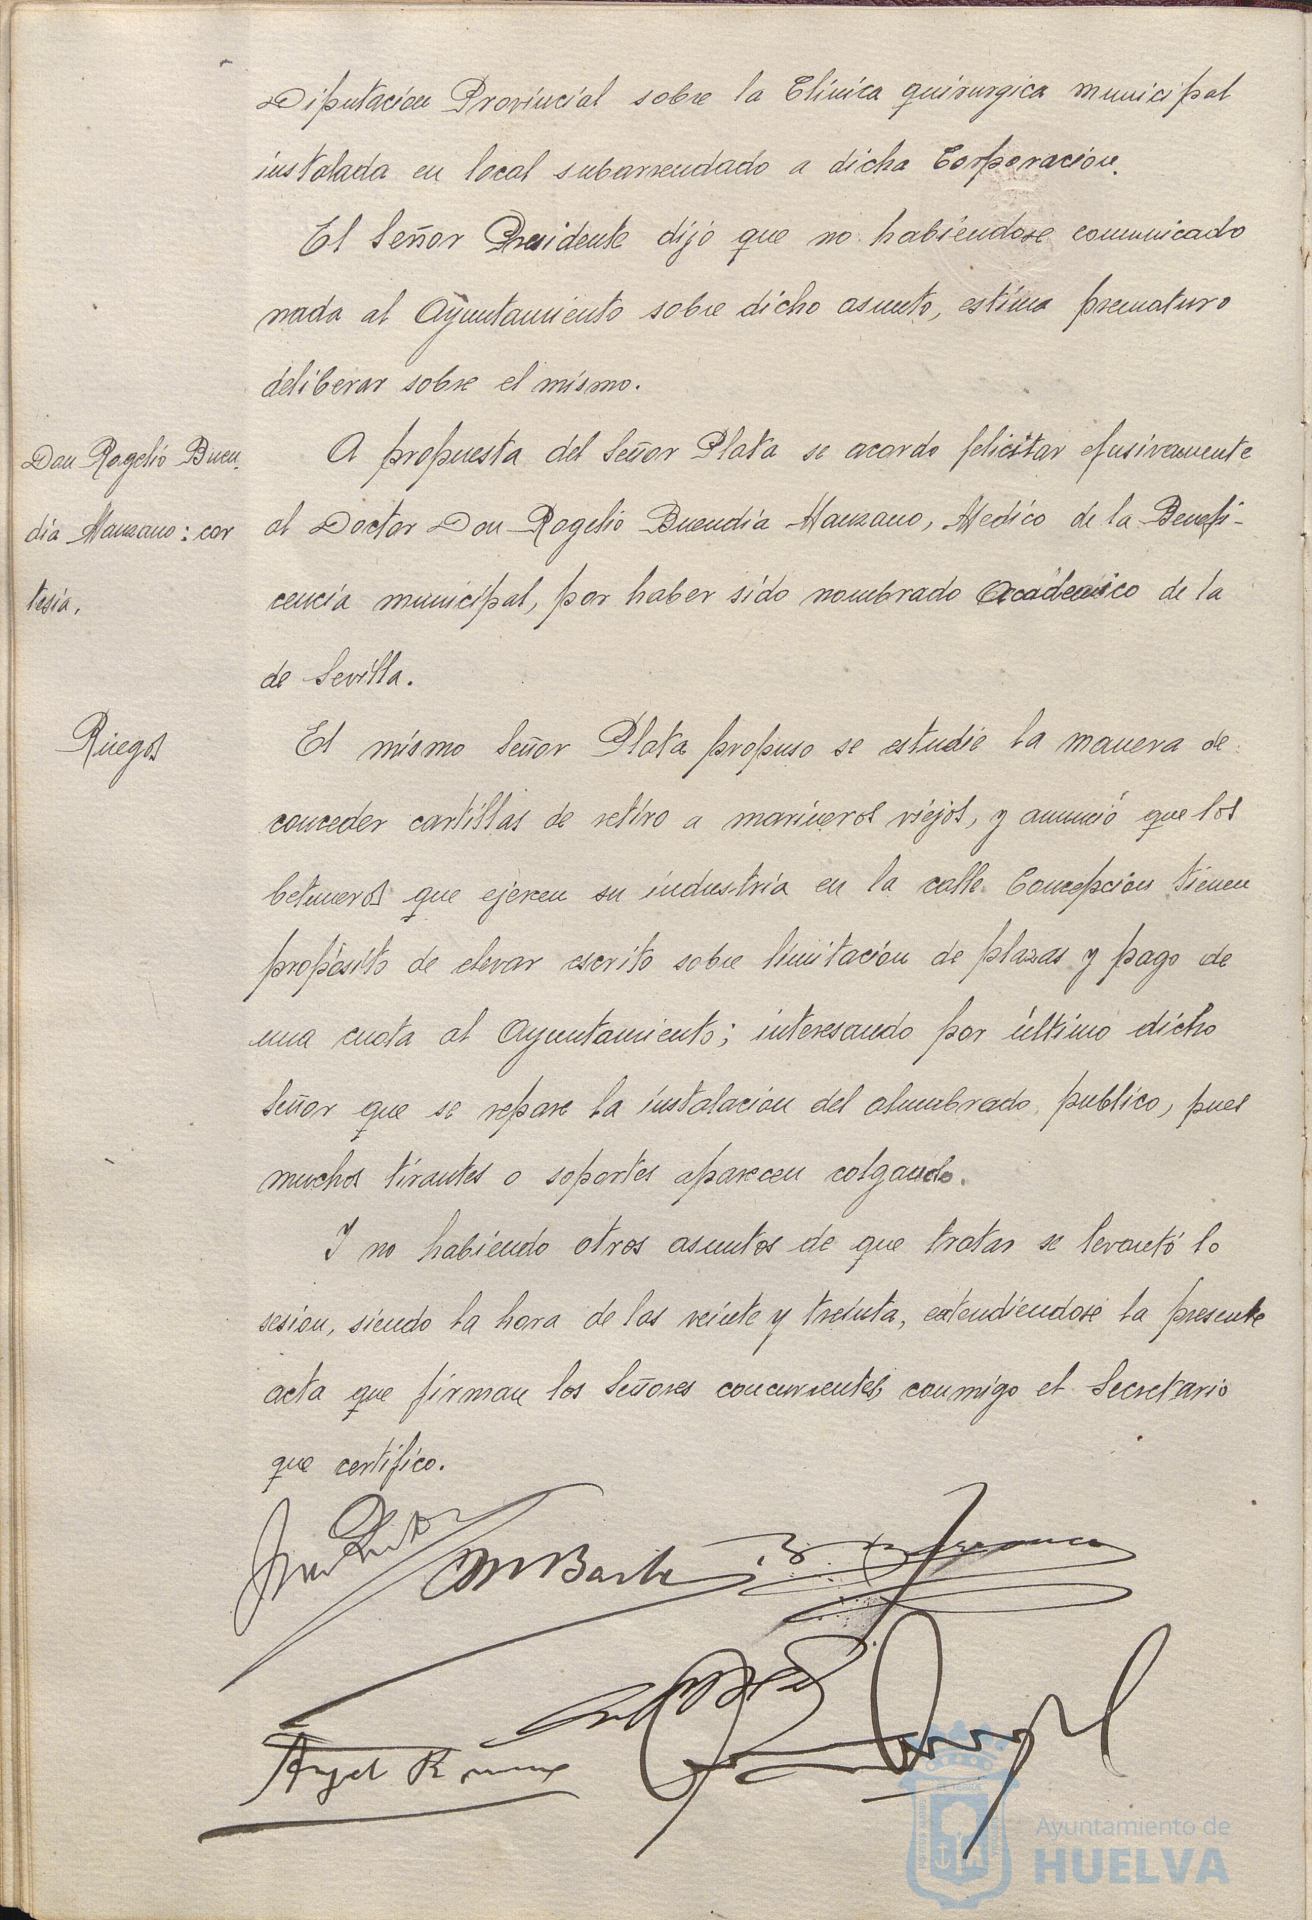 Diputación Provincial sobre la Clínica quirurgica municipal
instalada en local subarrendado a dicha Corporación.
El Señor Presidente dijo que no habiendose comunicado
nada al Ayuntamiento sobre dicho asunto, estima prematuro
deliberar sobre el mismo.
Don Rogelio Buen
día Manzano: cor
tesia.
A propuesta del Señor Plata se acordo felicitar efusivamente
al Doctor Don Rogelio Buendía Manzano, Medico de la Benefi-
cencia municipal, por haber sido nombrado Académico de la
de Sevilla.
Ruegos
El mismo Señor Plata propuso se estudie la manera de
conceder cartillas de retiro a marineros viejos, y anunció que los
betuneros que ejercen su industria en la calle Concepción tienen
propósito de elevar escrito sobre limitación de plazas y pago de
una cuota al Ayuntamiento; interesando por último dicho
Señor que se repare la instalación del alumbrado publico, pues
muchos tirantes o soportes aparecen colgando.
Y no habiendo otros asuntos de que tratar se levantó la
sesión, siendo la hora de las veinte y treinta, extendiendose la presente
acta que firman los Señores concurrentes conmigo el Secretario
que certifico.
Ayuntamiento de
HUELVA